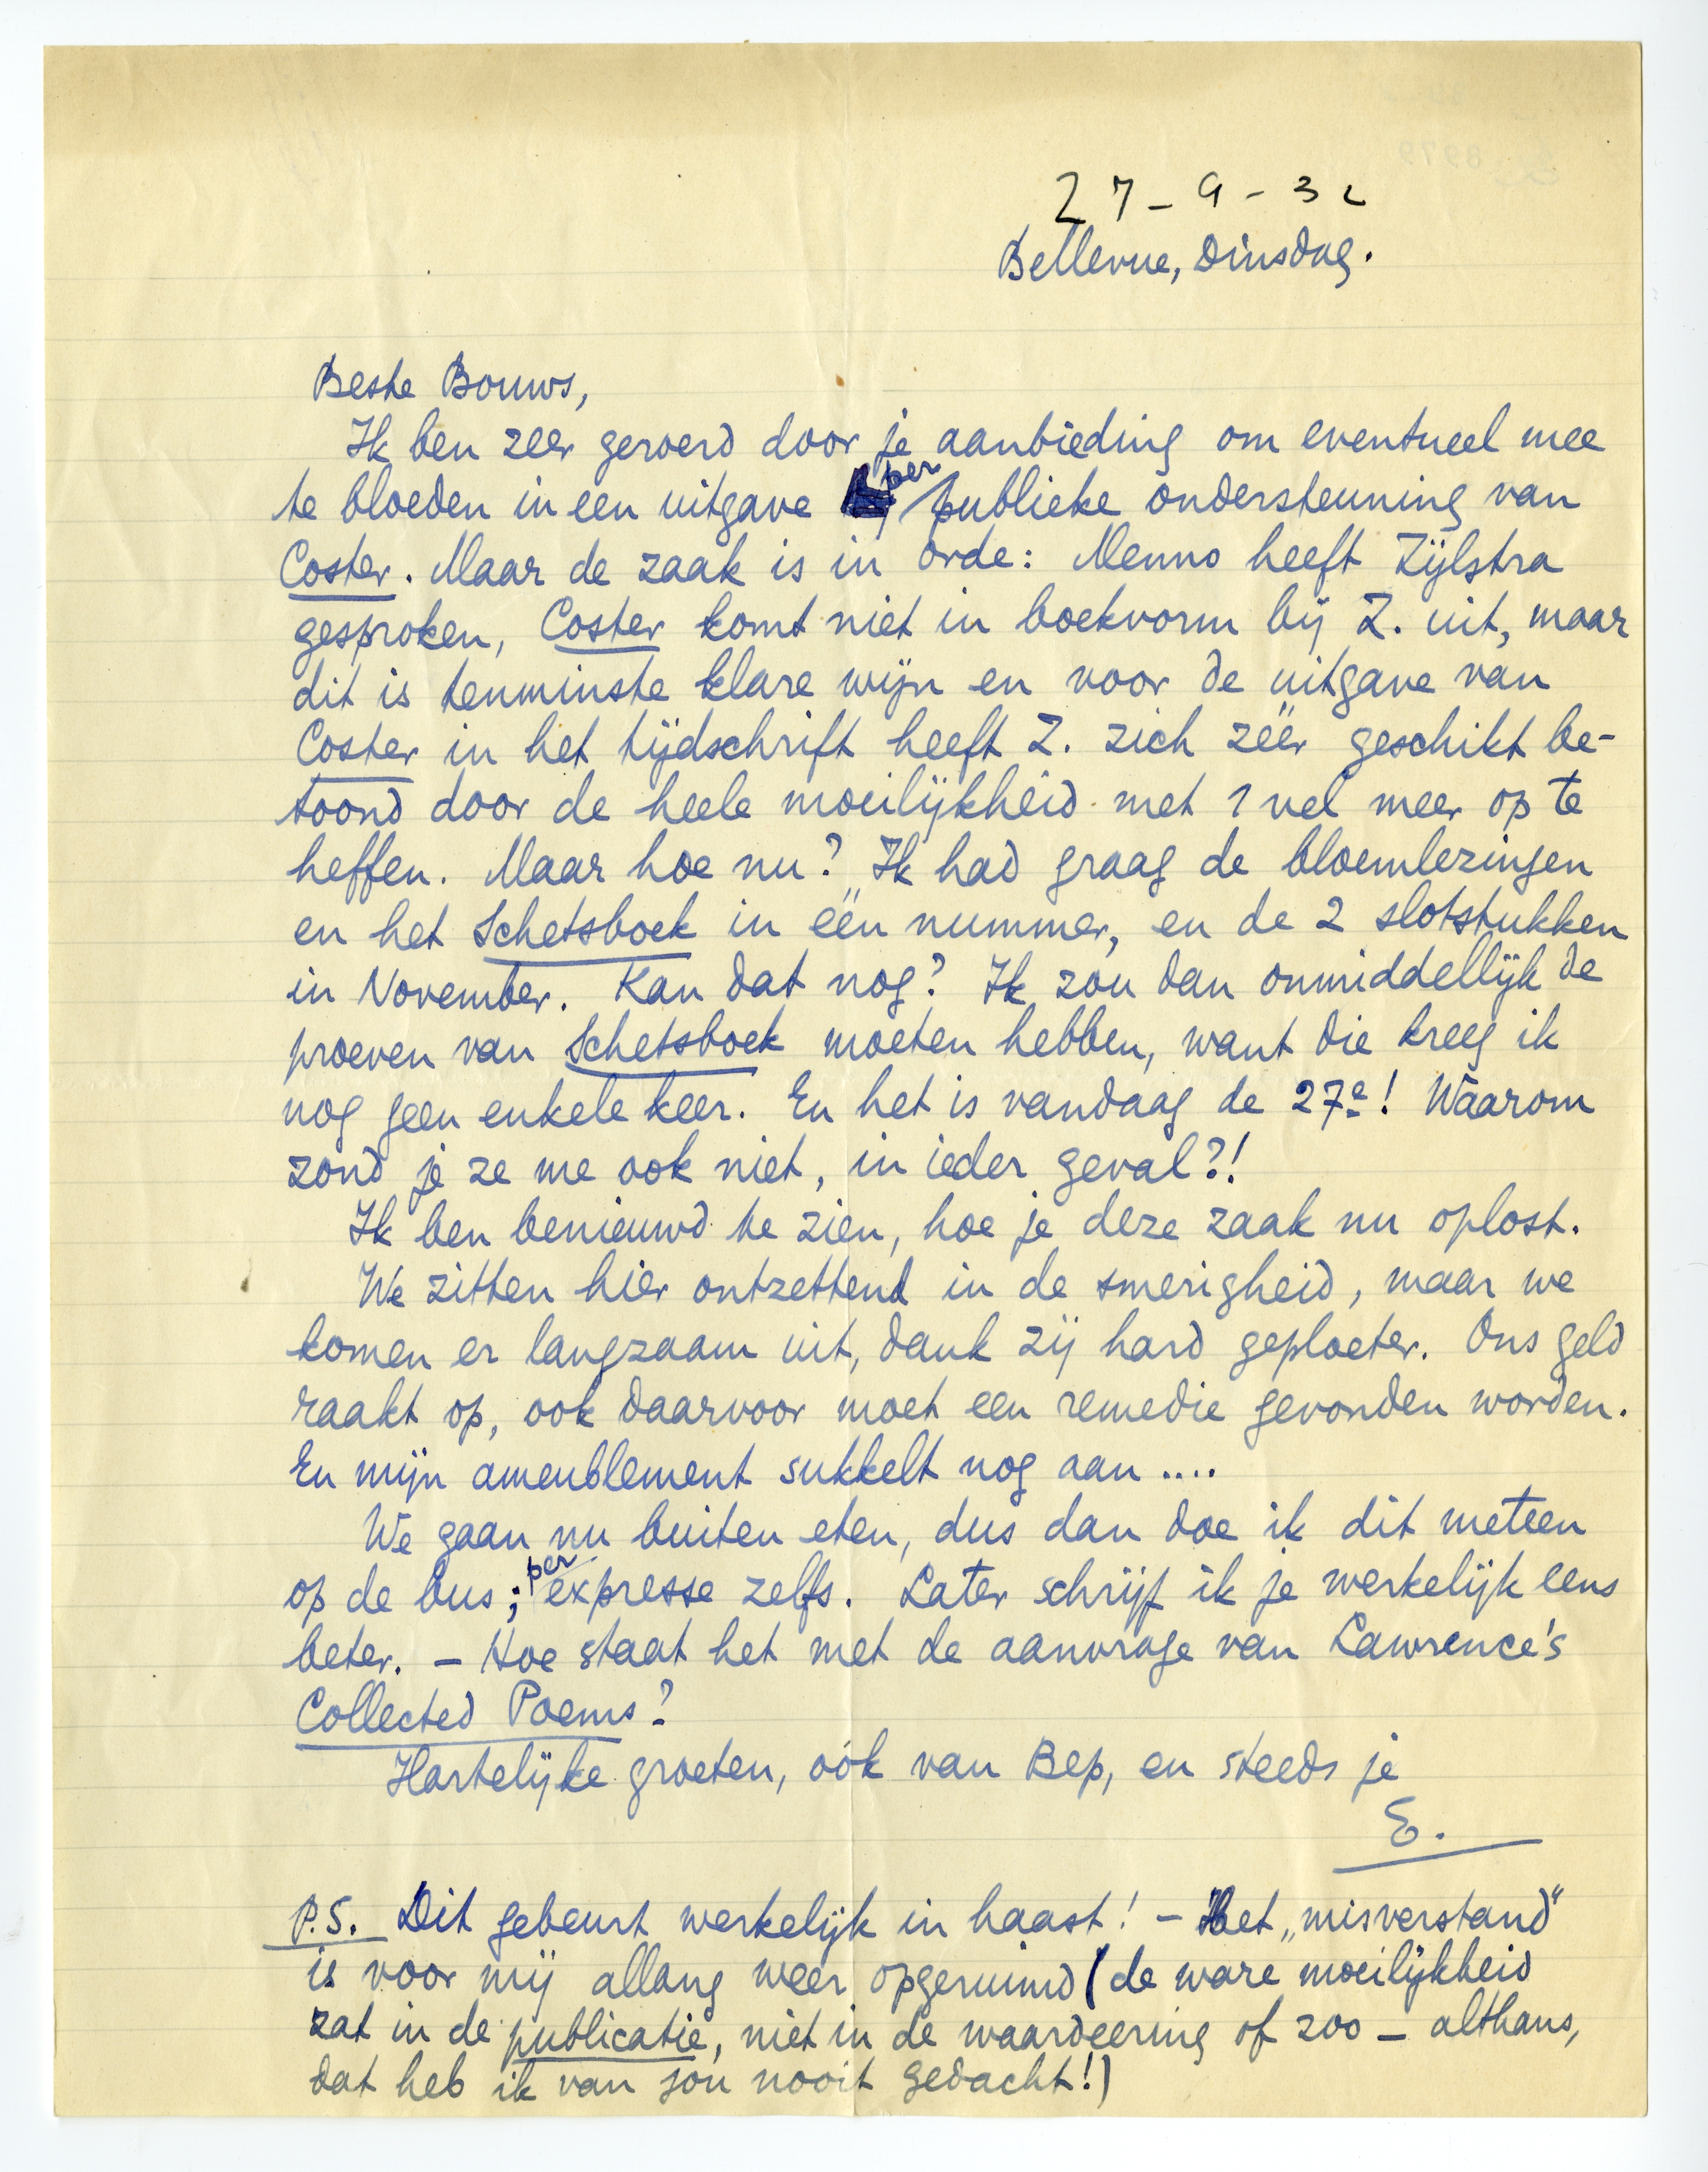 27-9-32
Bellevue, Dinsdag.
Beste Bouws,
Ik ben zeer geroerd door je aanbieding om eventueel mee
te bloeden in een uitgave per publieke ondersteuning van
Coster. Maar de zaak is in orde: Menno heeft Zijlstra
gesproken, Coster komt niet in boekvorm bij Z. uit, maar
dit is tenminste klare wijn en voor de uitgave van
Coster in het tijdschrift heeft Z. zich zéér geschikt be-
toond door de heele moeilijkheid met 1 vel meer op te
heffen. Maar hoe nu? Ik had graag de bloemlezingen
en het Schetsboek in één nummer, en de 2 slotstukken
in November. Kan dat nog? Ik zou dan onmiddellijk de
proeven van Schetsboek moeten hebben, want die kreeg ik
nog geen enkele keer. En het is vandaag de 27e! Waarom
zond je ze me ook niet, in ieder geval?!
Ik ben benieuwd te zien, hoe je deze zaak nu oplost.
We zitten hier ontzettend in de smerigheid, maar we
komen er langzaam uit, dank zij hard geploeter. Ons geld
raakt op, ook daarvoor moet een remedie gevonden worden.
En mijn ameublement sukkelt nog aan ....
We gaan nu buiten eten, dus dan doe ik dit meteen
op de bus; per expresse zelfs. Later schrijf ik je werkelijk eens
beter. – Hoe staat het met de aanvrage van Lawrence's
Collected Poems?
Hartelijke groeten, oók van Bep, en steeds je
E.
P.S. Dit gebeurt werkelijk in haast! – Het „misverstand"
is voor mij allang weer opgeruimd (de ware moeilijkheid
zat in de publicatie, niet in de waardeering of zoo – althans,
dat heb ik van jou nooit gedacht!)